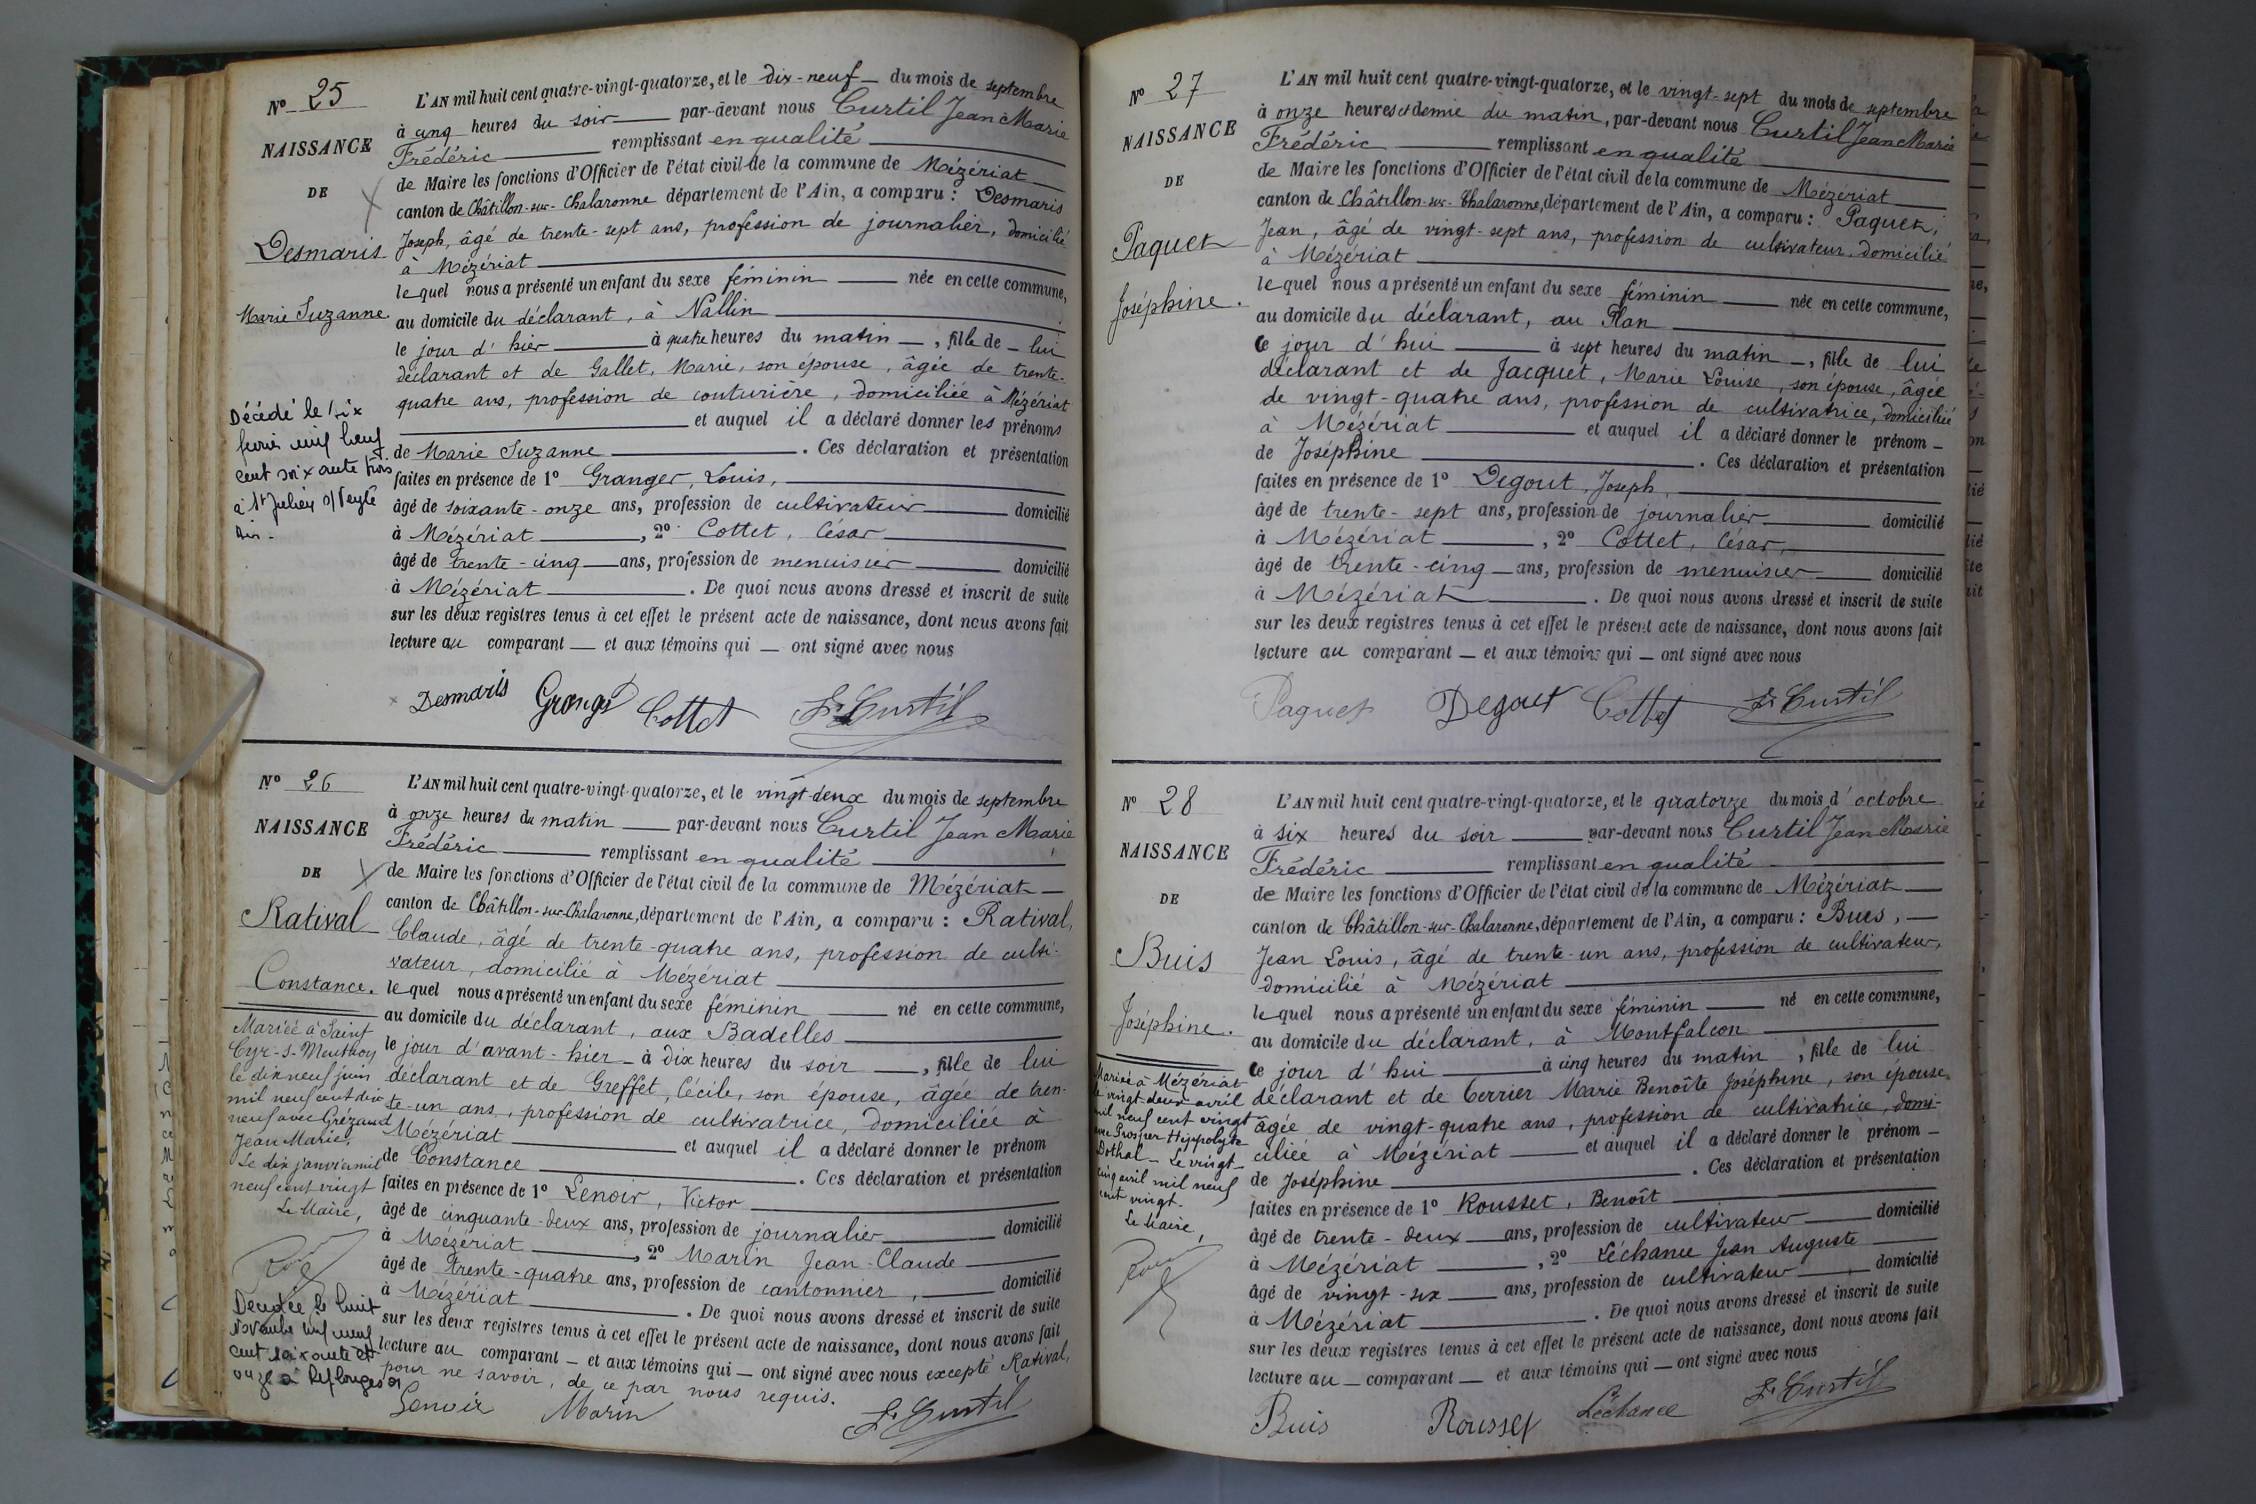 N° 25
NAISSANCE
DE
Desmaris
Marie Suzanne.
Décédé le six
mil neuf
cent soixante trois
à St Julien s/Veyle
Ain -
L'AN mil huit cent quatre-vingt-quatorze, et le dix-neuf du mois de septembre
à cinq heures du soir par-devant nous Curtil Jean Marie
Frédéric remplissant en qualité
de Maire les fonctions d'Officier de l'état civil de la commune de Mézériat
canton de Châtillon-sur-Chalaronne département de l'Ain, a comparu : Desmaris
Joseph, âgé de trente-sept ans, profession de journalier, domicilié
à Mézériat
lequel nous a présenté un enfant du sexe féminin née en cette commune,
au domicile du déclarant, à Nallin
le jour d'hier à quatre heures du matin, fille de lui
déclarant et de Gallet, Marie, son épouse, âgée de trente-
quatre ans, profession de couturière, domiciliée à Mézériat
et auquel il a déclaré donner les prénoms
de Marie Suzanne. Ces déclaration et présentation
faites en présence de 1° Granger, Louis,
âgé de soixante-onze ans, profession de cultivateur domicilié
à Mézériat, 2° Cottet, César
âgé de trente-cinq ans, profession de menuisier domicilié
à Mézériat. De quoi nous avons dressé et inscrit de suite
sur les deux registres tenus à cet effet le présent acte de naissance, dont nous avons fait
lecture au comparant et aux témoins qui ont signé avec nous
Desmaris Granger Cottet F. Curtil
N° 26
NAISSANCE
DE
Ratival
Constance.
Mariée à Saint
Cyr-s-Menthon
le dix neuf juin
mil neuf cent dix
neuf avec Grézaud
Jean Marie,
Le dix janvier mil
neuf cent vingt
Le Maire,
Décédée le huit
Novembre mil neuf
cent soixante et
onze à Replonges 01
L'AN mil huit cent quatre-vingt-quatorze, et le vingt-deux du mois de septembre
à onze heures du matin par-devant nous Curtil Jean Marie
Frédéric remplissant en qualité
de Maire les fonctions d'Officier de l'état civil de la commune de Mézériat
canton de Châtillon-sur-Chalaronne, département de l'Ain, a comparu : Ratival,
Claude, âgé de trente-quatre ans, profession de culti-
vateur, domicilié à Mézériat
lequel nous a présenté un enfant du sexe féminin né en cette commune,
au domicile du déclarant, aux Badelles
le jour d'avant-hier à dix heures du soir, fille de lui
déclarant et de Greffet, Cécile, son épouse, âgée de tren-
te-un ans, profession de cultivatrice, domiciliée à
Mézériat et auquel il a déclaré donner le prénom
de Constance. Ces déclaration et présentation
faites en présence de 1° Lenoir, Victor
âgé de cinquante-deux ans, profession de journalier domicilié
à Mézériat, 2° Marin Jean-Claude
âgé de trente-quatre ans, profession de cantonnier, domicilié
à Mézériat. De quoi nous avons dressé et inscrit de suite
sur les deux registres tenus à cet effet le présent acte de naissance, dont nous avons fait
lecture au comparant et aux témoins qui ont signé avec nous excepté Ratival,
pour ne savoir, de ce par nous requis.
Lenoir Marin F. Curtil
N° 27
NAISSANCE
DE
Paquet
Joséphine.
L'AN mil huit cent quatre-vingt-quatorze, et le vingt-sept du mois de septembre
à onze heures et demie du matin, par-devant nous Curtil Jean Marie
Frédéric remplissant en qualité
de Maire les fonctions d'Officier de l'état civil de la commune de Mézériat
canton de Châtillon-sur-Chalaronne, département de l'Ain, a comparu : Paquet,
Jean, âgé de vingt-sept ans, profession de cultivateur, domicilié
à Mézériat
lequel nous a présenté un enfant du sexe féminin née en cette commune,
au domicile du déclarant, au Plan
ce jour d'hui à sept heures du matin, fille de lui
déclarant et de Jacquet, Marie Louise, son épouse, âgée
de vingt-quatre ans, profession de cultivatrice, domicilié
à Mézériat et auquel il a déclaré donner le prénom
de Joséphine. Ces déclaration et présentation
faites en présence de 1° Degout, Joseph,
âgé de trente-sept ans, profession de journalier domicilié
à Mézériat, 2° Cottet, César,
âgé de trente-cinq ans, profession de menuisier domicilié
à Mézériat. De quoi nous avons dressé et inscrit de suite
sur les deux registres tenus à cet effet le présent acte de naissance, dont nous avons fait
lecture au comparant et aux témoins qui ont signé avec nous
Paquet Degout Cottet F. Curtil
N° 28
NAISSANCE
DE
Buis
Joséphine.
Mariée à Mézériat
le vingt-deux avril
mil neuf cent vingt
avec Prosper Hippolyte
Bothal - Le vingt-
cinq avril mil neuf
cent vingt.
Le Maire,
L'AN mil huit cent quatre-vingt-quatorze, et le quatorze du mois d'octobre
à six heures du soir par-devant nous Curtil Jean Marie
Frédéric remplissant en qualité
de Maire les fonctions d'Officier de l'état civil de la commune de Mézériat
canton de Châtillon-sur-Chalaronne, département de l'Ain, a comparu : Bues,
Jean Louis, âgé de trente-un ans, profession de cultivateur,
domicilié à Mézériat
lequel nous a présenté un enfant du sexe féminin né en cette commune,
au domicile du déclarant, à Montfalcon
ce jour d'hui à cinq heures du matin, fille de lui
déclarant et de Terrier Marie Benoîte Joséphine, son épouse,
âgée de vingt-quatre ans, profession de cultivatrice, domi-
ciliée à Mézériat et auquel il a déclaré donner le prénom
de Joséphine. Ces déclaration et présentation
faites en présence de 1° Rousset, Benoît
âgé de trente-deux ans, profession de cultivateur domicilié
à Mézériat, 2° Léchance Jean Auguste
âgé de vingt-six ans, profession de cultivateur domicilié
à Mézériat. De quoi nous avons dressé et inscrit de suite
sur les deux registres tenus à cet effet le présent acte de naissance, dont nous avons fait
lecture au comparant et aux témoins qui ont signé avec nous
Buis Rousset Léchance F. Curtil